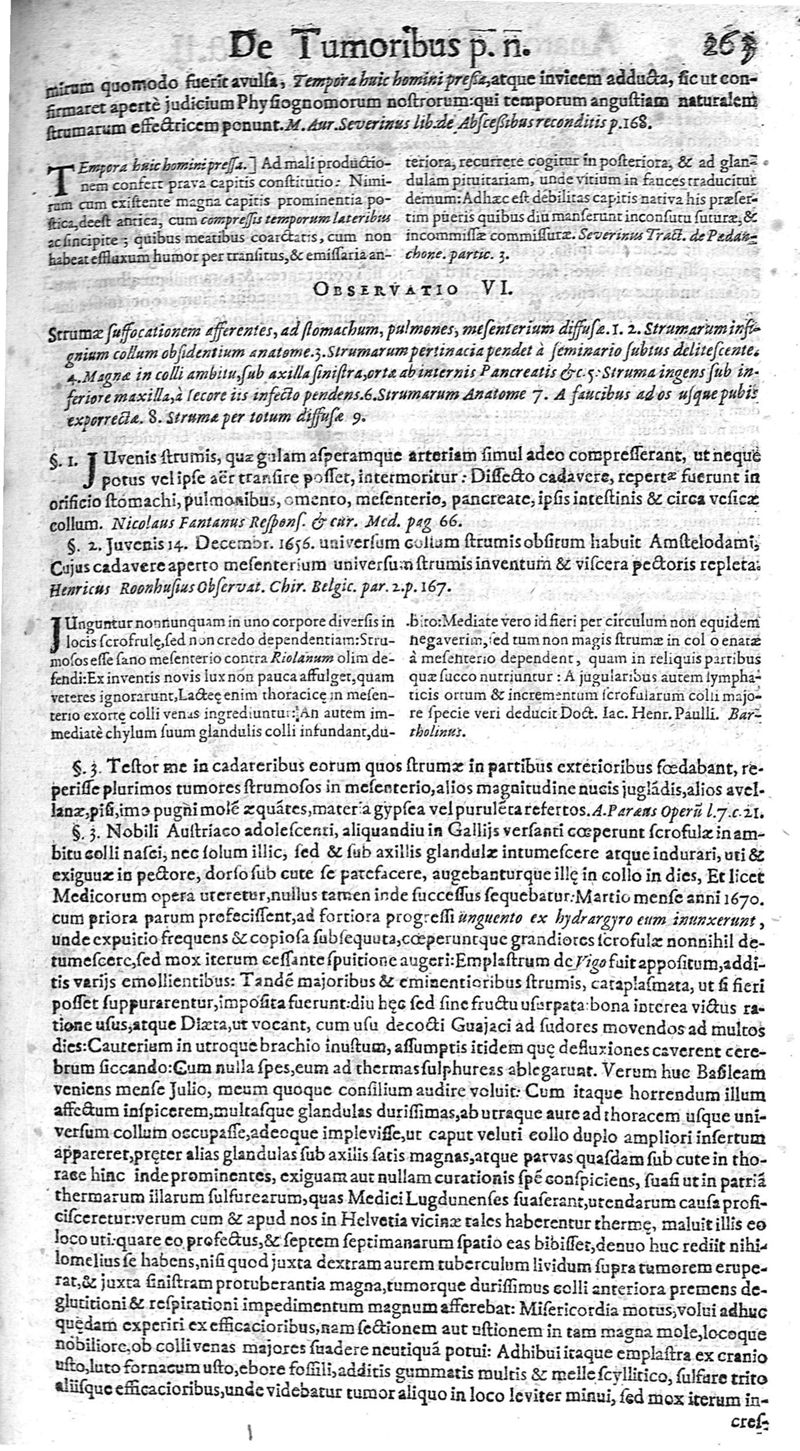 De Tumoribus p. n̄. 263
mirum quomodo fuerit avulsa, Tempora huic homini pressa, atque invicem adducta, sic ut con-
firmaret apertè judicium Physiognomorum nostrorum: qui temporum angustiam naturalem
strumarum effectricem ponunt. M. Aur. Severinus lib. de Abscessibus reconditis p. 168.
TEmpora huic homini pressa.] Ad mali productio-
nem confert prava capitis constitutio: Nimi-
rum cum existente magna capitis prominentia po-
stica, deest antica, cum compressis temporum lateribus
ac sincipite; quibus meatibus coarctatis, cum non
habeat effluxum humor per transitus, & emissaria an-
teriora, recurrere cogitur in posteriora, & ad glan-
dulam pituitariam, unde vitium in fauces traducitur
demum: Adhæc est debilitas capitis nativa his præser-
tim pueris quibus diu manserunt inconsutu suturæ, &
incommissæ commissuræ. Severinus Tract. de Pædan-
chone. partic. 3.
OBSERVATIO VI.
Strumæ suffocationem afferentes, ad stomachum, pulmones, mesenterium diffusæ. 1. 2. Strumarum insi-
gnium collum obsidentium anatome. 3. Strumarum pertinacia pendet à seminario subtus delitescente.
4. Magnæ in colli ambitu, sub axilla sinistra, ortæ ab internis Pancreatis &c. 5. Struma ingens sub in-
feriore maxilla, à jecore iis infecto pendens. 6. Strumarum Anatome 7. A faucibus ad os usque pubis
exporrectæ. 8. Struma per totum diffusæ 9.
§. 1. JUvenis strumis, quæ gulam asperamque arteriam simul adeo compresserant, ut neque
potus vel ipse aër transire posset, intermoritur: Dissecto cadavere, repertæ fuerunt in
orificio stomachi, pulmonibus, omento, mesenterio, pancreate, ipsis intestinis & circa vesicæ
collum. Nicolaus Fantanus Respons. & cur. Med. pag 66.
§. 2. Juvenis 14. Decembr. 1656. universum collum strumis obsitum habuit Amstelodami,
Cujus cadavere aperto mesenterium universum strumis inventum & viscera pectoris repleta.
Henricus Roonhusius Observat. Chir. Belgic. par. 2. p. 167.
JUnguntur nonnunquam in uno corpore diversis in
locis scrofulę, sed non credo dependentiam: Stru-
mosos esse sano mesenterio contra Riolanum olim de-
fendi: Ex inventis novis lux non pauca affulget, quam
veteres ignorarunt, Lacteę enim thoracicę in mesen-
terio exortę colli venas ingrediuntur: An autem im-
mediatè chylum suum glandulis colli infundant, du-
bito: Mediate vero id fieri per circulum non equidem
negaverim, sed tum non magis strumæ in col o enatæ
à mesenterio dependent, quam in reliquis partibus
quæ succo nutriuntur: A jugularibus autem lympha-
ticis ortum & incrementum scrofularum colli majo-
re specie veri deducit Doct. Iac. Henr. Paulli. Bar-
tholinus.
§. 3. Testor me in cadareribus eorum quos strumæ in partibus exterioribus fœdabant, re-
perisse plurimos tumores strumosos in mesenterio, alios magnitudine nucis juglãdis, alios avel-
lanæ, pisi, imo pugni molẽ æquãtes, materia gypsea vel purulẽta refertos. A. Paræus Operũ l. 7. c. 21.
§. 3. Nobili Austriaco adolescenti, aliquandiu in Gallijs versanti cœperunt scrofulæ in am-
bitu colli nasci, nec solum illic, sed & sub axillis glandulæ intumescere atque indurari, uti &
exiguæ in pectore, dorso sub cute se patefacere, augebanturque illę in collo in dies, Et licet
Medicorum opera uteretur, nullus tamen inde successus sequebatur: Martio mense anni 1670.
cum priora parum profecissent, ad fortiora progressi unguento ex hydrargyro eum inunxerunt,
unde expuitio frequens & copiosa subsequuta, cœperuntque grandiores scrofulæ nonnihil de-
tumescere, sed mox iterum cessante sputitione augeri: Emplastrum de Vigo fuit appositum, addi-
tis varijs emollientibus: Tandẽ majoribus & eminentioribus strumis, cataplasmata, ut si fieri
posset suppurarentur, imposita fuerunt: diu hęc sed sine fructu usurpata: bona interea victus ra-
tione usus, atque Diæta, ut vocant, cum usu decocti Guajaci ad sudores movendos ad multos
dies: Cauterium in utroque brachio inustum, assumptis itidem quę defluxiones caverent cere-
brum siccando: Cum nulla spes, eum ad thermas sulphureas ablegarunt. Verum huc Basileam
veniens mense Julio, meum quoque consilium audire voluit: Cum itaque horrendum illum
affectum inspicerem, multasque glandulas durissimas, ab utraque aure ad thoracem usque uni-
versum collum occupasse, adeoque implevisse, ut caput veluti collo duplo ampliori insertum
appareret, pręter alias glandulas sub axilis satis magnas, atque parvas quasdam sub cute in tho-
race hinc inde prominentes, exiguam aut nullam curationis spẽ conspiciens, suasi ut in patriã
thermarum illarum sulfurearum, quas Medici Lugdunenses suaserant, utendarum causa profi-
cisceretur: verum cum & apud nos in Helvetia vicinæ tales haberentur thermę, maluit illis eo
loco uti: quare eo profectus, & septem septimanarum spatio eas bibisset, denuo huc rediit nihi-
lomelius se habens, nisi quod juxta dextram aurem tuberculum lividum supra tumorem erupe-
rat, & juxta sinistram protuberantia magna, tumorque durissimus colli anteriora premens de-
glutitioni & respirationi impedimentum magnum afferebat: Misericordia motus, volui adhuc
quędam experiri ex efficacioribus, nam sectionem aut ustionem in tam magna mole, locoque
nobiliore, ob colli venas majores suadere neutiquã potui: Adhibui itaque emplastra ex cranio
usto, luto fornacum usto, ebore fossili, additis gummatis multis & melle scyllitico, sulfure trito
aliisque efficacioribus, unde videbatur tumor aliquo in loco leviter minui, sed mox iterum in-
cres-